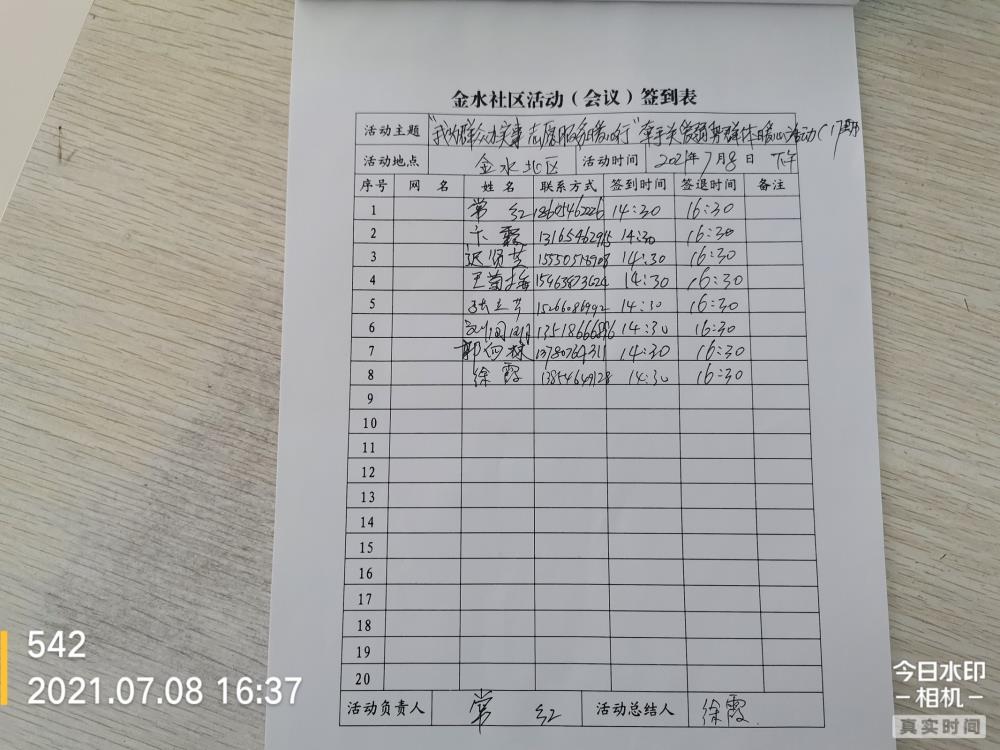 金水社区活动（会议）签到表
活动主题 "我为群众办实事 志愿服务暖心行" 牵手关爱弱势群体暖心活动(17期)
活动地点 金水北区 活动时间 2021年7月8日 下午
序号 网 名 姓 名 联系方式 签到时间 签退时间 备注
1 常 红 14:30 16:30
2 卞 霞 14:30 16:30
3 贤芝 14:30 16:30
4 王菊梅 14:30 16:30
5 张立芳 14:30 16:30
6 14:30 16:30
7 郭 14:30 16:30
8 徐霞 13854649128 14:30 16:30
9
10
11
12
13
14
15
16
17
18
19
20
活动负责人 常 红 活动总结人 徐霞
542
2021.07.08 16:37
今日水印
相机
真实时间